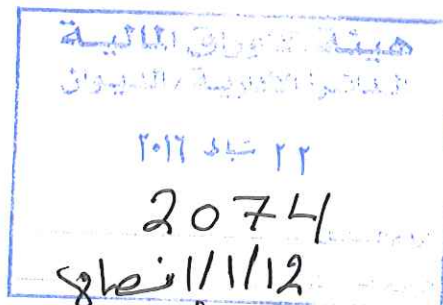 هيئة الأوراق المالية
الدائرة الادارية / الديوان
٢٢ شباط ٢٠١٦
2074
1/1/12